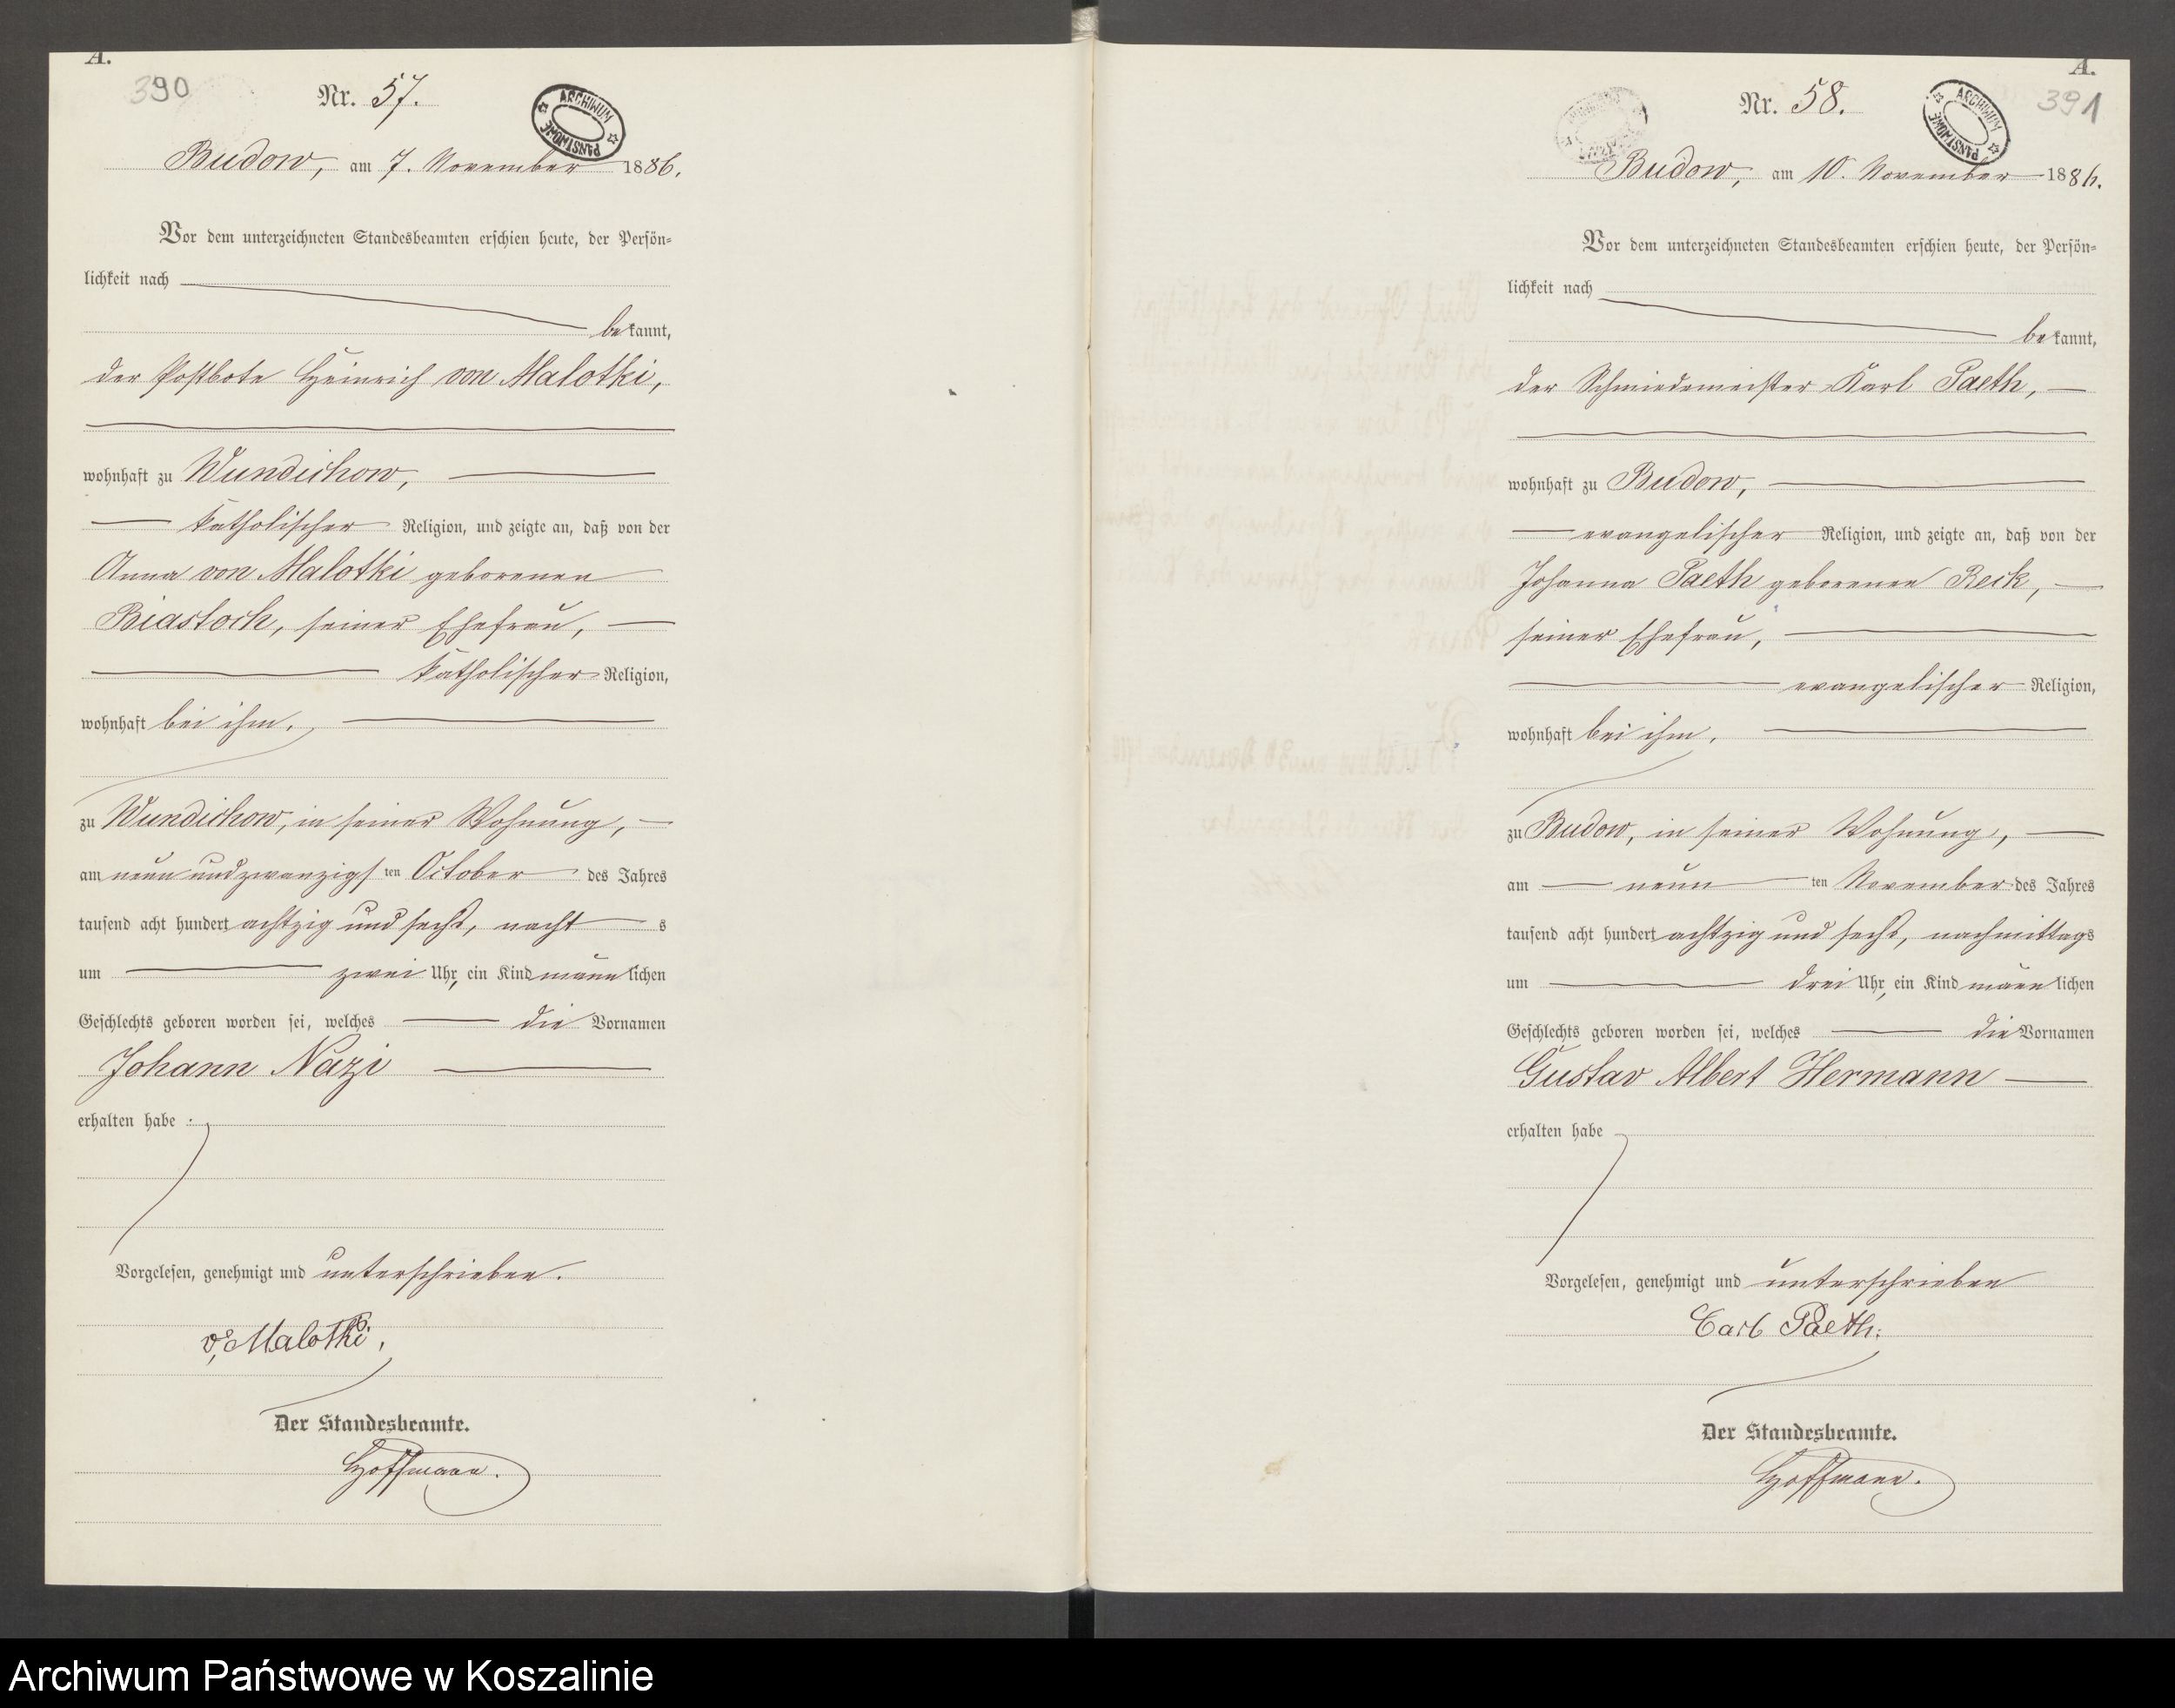 A.
390
Nr. 57.
ARCHIWUM PAŃSTWOWE
Budow, am 7. November 1886.
Vor dem unterzeichneten Standesbeamten erschien heute, der Persön=
lichkeit nach
bekannt,
der Postbote Heinrich von Malotki,
wohnhaft zu Wundichow,
katholischer Religion, und zeigte an, daß von der
Anna von Malotki geborenen
Biastoch, seiner Ehefrau,
katholischer Religion,
wohnhaft bei ihm,
zu Wundichow, in seiner Wohnung,
am neun und zwanzigsten October des Jahres
tausend acht hundert achtzig und sechs, nachts
um zwei Uhr, ein Kind männlichen
Geschlechts geboren worden sei, welches die Vornamen
Johann Nazi
erhalten habe.
Vorgelesen, genehmigt und unterschrieben.
v. Malotki,
Der Standesbeamte.
Hoffmann.
A.
391
Nr. 58.
ARCHIWUM PAŃSTWOWE
Budow, am 10. November 1886.
Vor dem unterzeichneten Standesbeamten erschien heute, der Persön=
lichkeit nach
bekannt,
der Schmiedemeister Karl Paeth,
wohnhaft zu Budow,
evangelischer Religion, und zeigte an, daß von der
Johanna Paeth geborenen Reck,
seiner Ehefrau,
evangelischer Religion,
wohnhaft bei ihm,
zu Budow, in seiner Wohnung,
am neunten November des Jahres
tausend acht hundert achtzig und sechs, nachmittags
um drei Uhr, ein Kind männlichen
Geschlechts geboren worden sei, welches die Vornamen
Gustav Albert Hermann
erhalten habe
Vorgelesen, genehmigt und unterschrieben
Carl Paeth.
Der Standesbeamte.
Hoffmann.
Archiwum Państwowe w Koszalinie